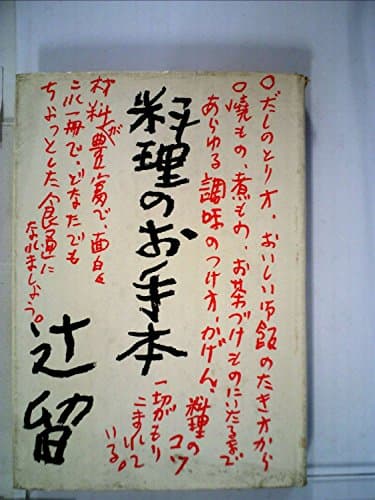 ○だしのとり方、おいしい御飯のたき方から
○焼もの、煮もの、お茶づけものにいたるまで
あらゆる調味のつけ方、かげん、料理の
コツ
一切がもり
こまれて
いる。
料理のお手本
材料が豊富で、面白く
これ一冊で、どなたでも
ちょっとした食通に
なれましょう。
辻留